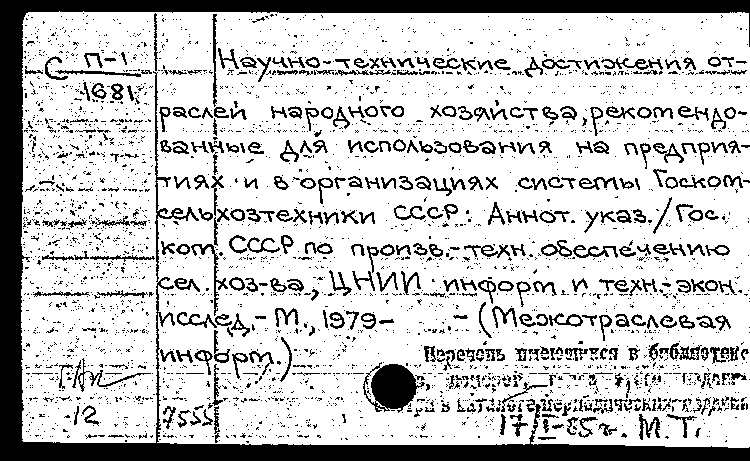 С П-1
1681
Научно-технические достижения от-
раслей народного хозяйства, рекомендо-
ванные для использования на предприя-
тиях и в организациях системы Госком-
сельхозтехники СССР: Аннот. указ./Гос.
ком. СССР по произв.-техн. обеспечению
сел. хоз-ва, ЦНИИ информ. и техн.-экон.
исслед. - М., 1979- .- (Межотраслевая
информ.)
Перечень имеющихся в библиотеке
в каталоге периодических изданий
12 7555
17/I-85г. М.Т.